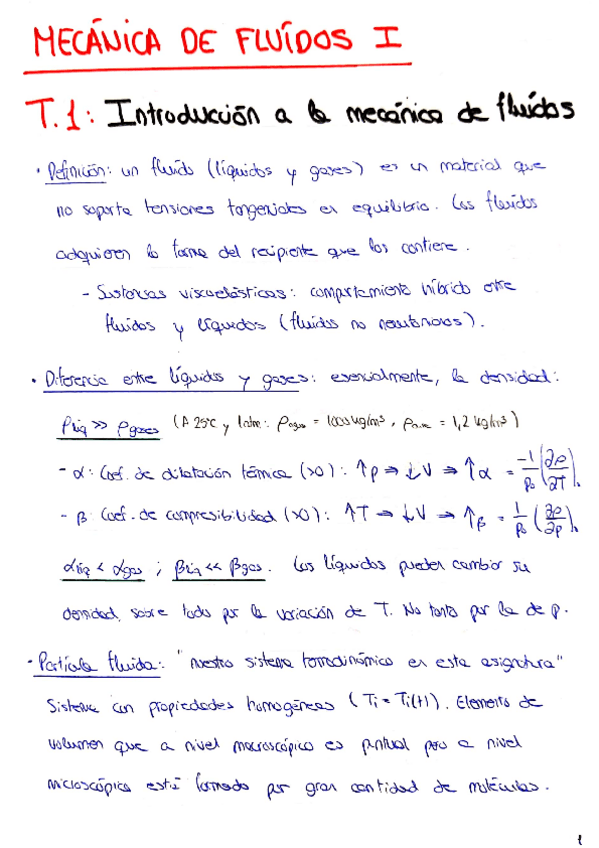 MECÁNICA DE FLUÍDOS I
T.1: Introducción a la mecánica de fluidos
· Definición: un fluido (líquidos y gases) es un material que
no soporta tensiones tangenciales en equilibrio. Los fluidos
adquieren la forma del recipiente que los contiene.
- Sustancias viscoelásticas: comportamiento híbrido entre
fluidos y líquidos (fluidos no newtonianos).
· Diferencia entre líquidos y gases: esencialmente, la densidad:
ρliq >> ρgases (A 25ºC y 1atm: ρagua = 1000 kg/m³, ρaire = 1,2 kg/m³)
- α: Coef. de dilatación térmica (>0): ↑p ⇒ ↓V ⇒ ↑α = -1/ρ₀ (∂ρ/∂T)
- β: Coef. de compresibilidad (>0): ↑T ⇒ ↓V ⇒ ↑β = 1/ρ₀ (∂ρ/∂p)
αliq < αgas ; βliq << βgas. Los líquidos pueden cambiar su
densidad, sobre todo por la variación de T. No tanto por la de p.
· Partícula fluida: "nuestro sistema termodinámico en esta asignatura"
Sistema con propiedades homogéneas (Ti = Ti(t)). Elemento de
volumen que a nivel macroscópico es puntual pero a nivel
microscópico está formado por gran cantidad de moléculas.
1